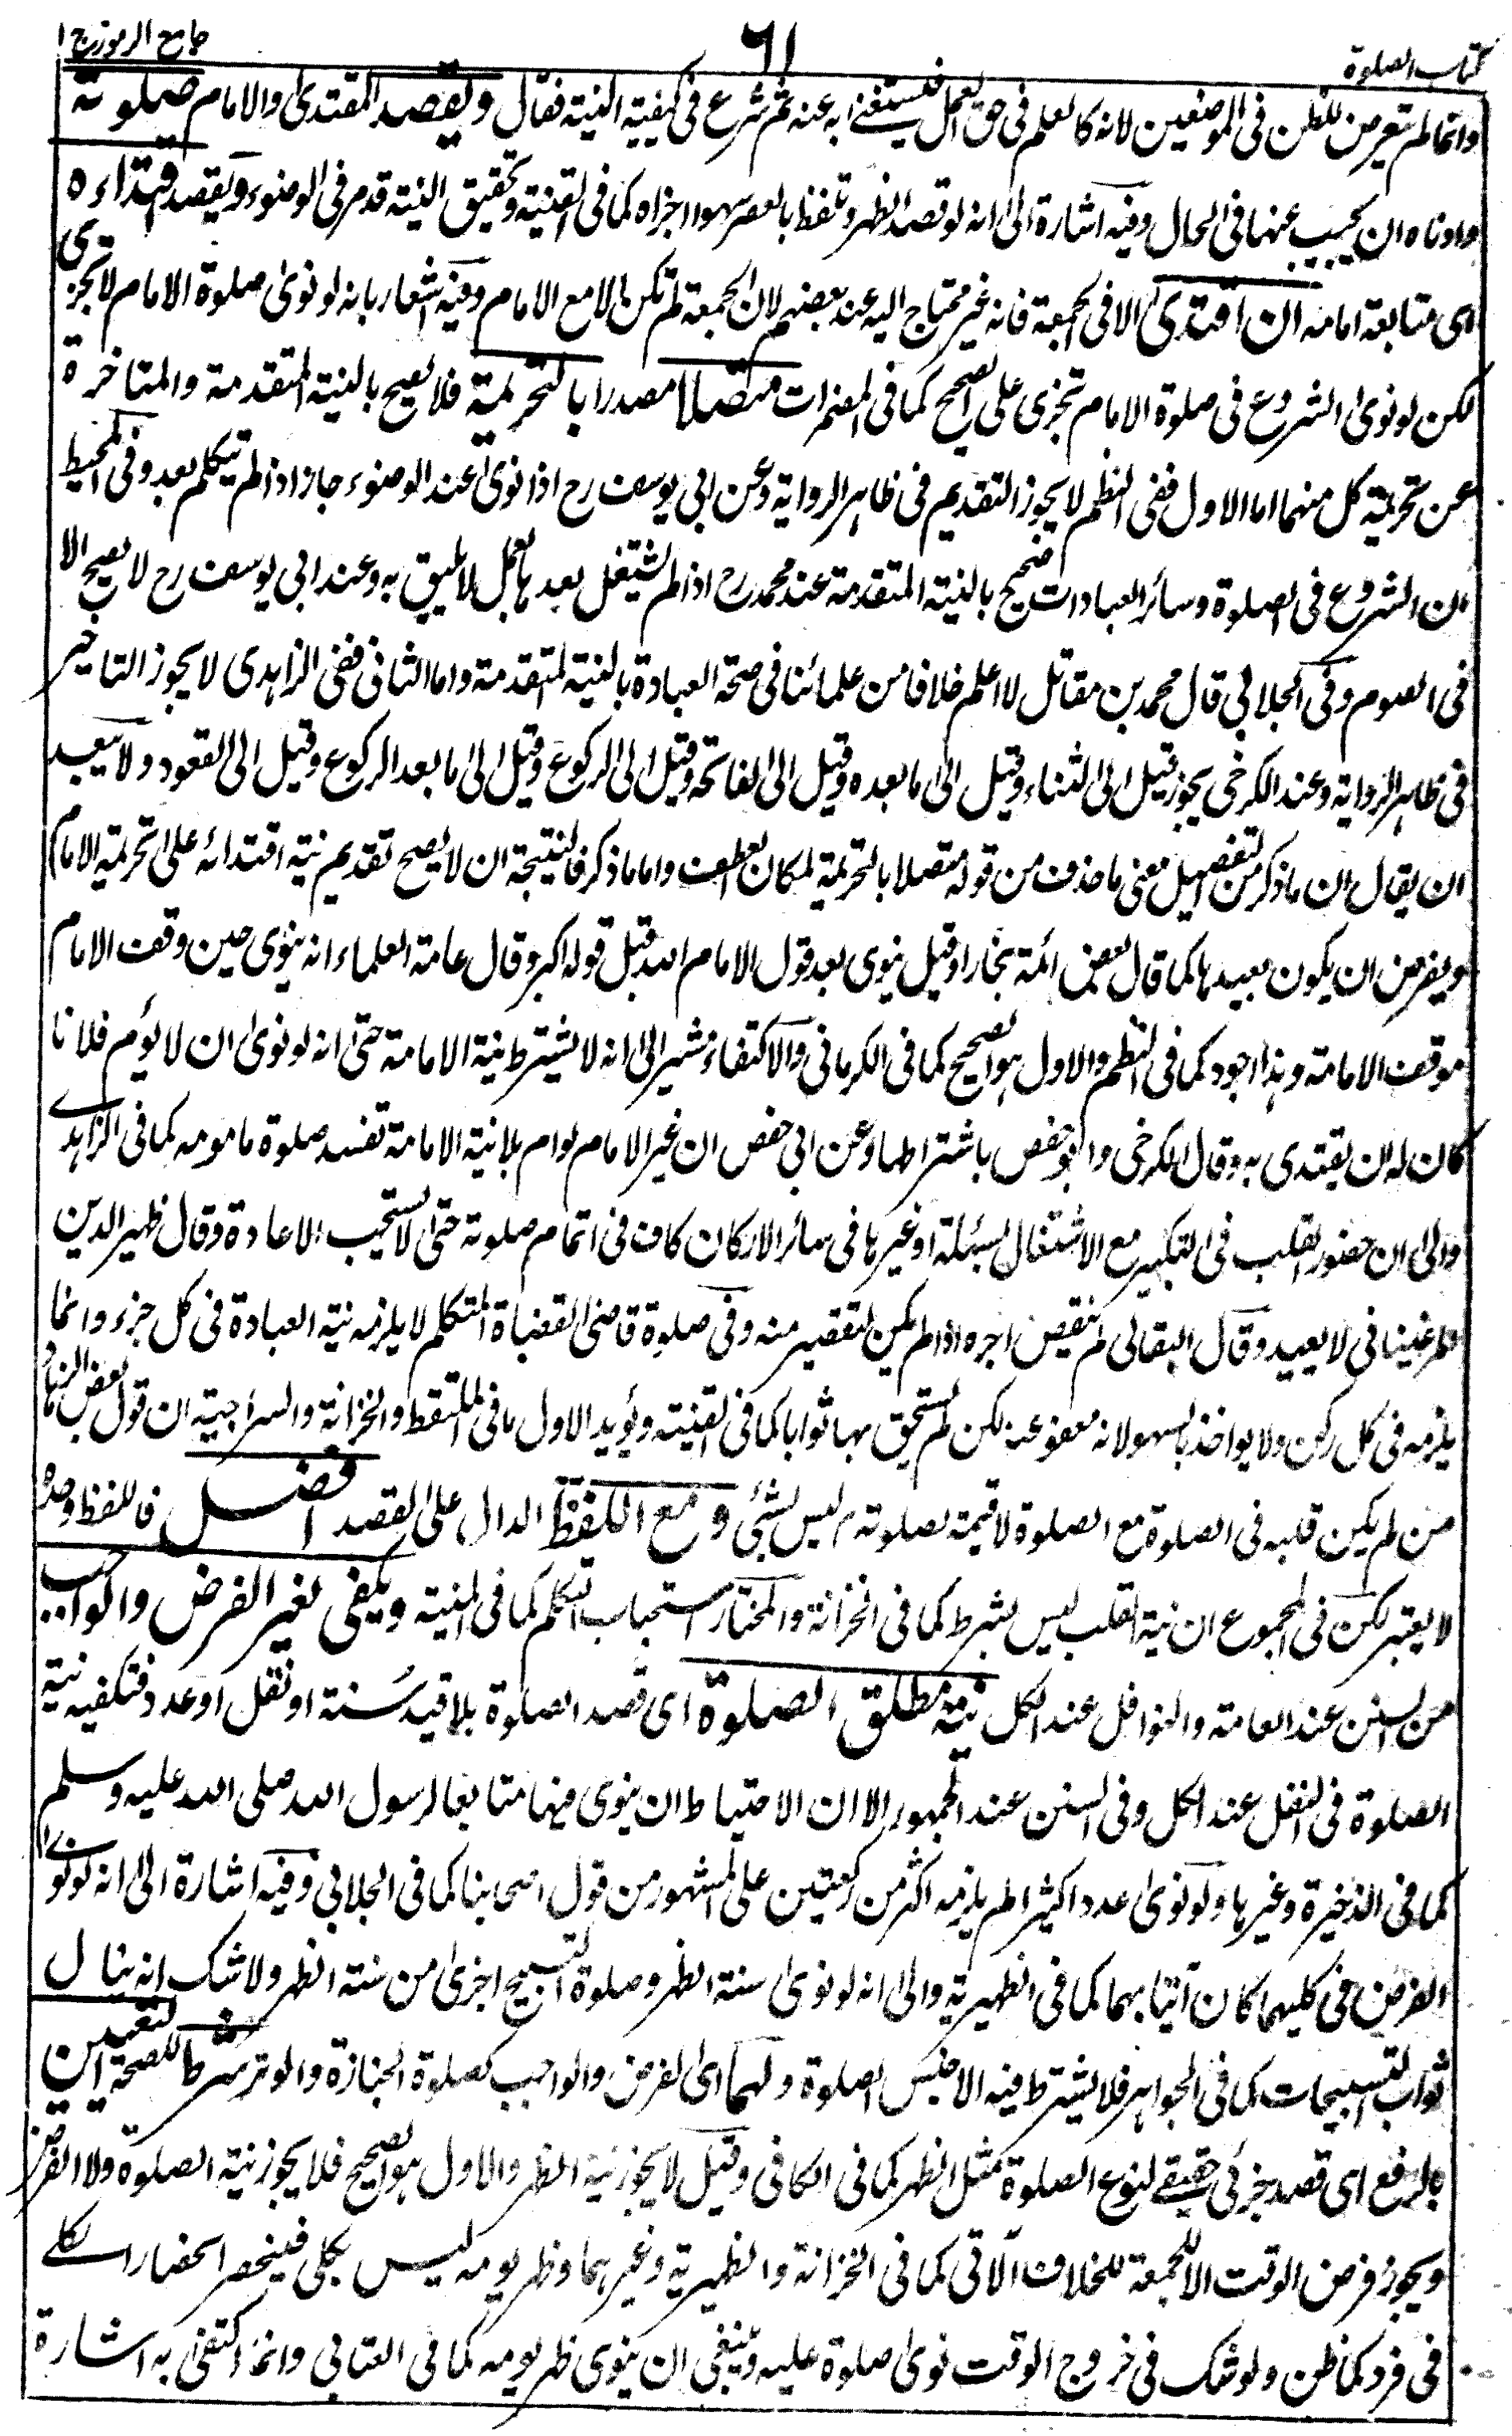 كتاب الصلوة
٦١
جامع الرموز ج ١
وانما لم يتعرض للظن فى الموضعين لانه كالعلم فى حق العمل فيستغنى به عنه ثم شرع فى كيفية النية فقال ويقصد المقتدى والامام صلوته
وادناه ان يجيب عنها فى الحال وفيه اشارة الى انه لو قصد الظهر وتلفظ بالعصر سهوا اجزاه كما فى القنية وتحقيق النية قد مر فى الوضوء ويقصد اقتداءه
اى متابعة امامه ان اقتدى الا فى الجمعة فانه غير محتاج اليه عند بعضهم لان الجمعة لم تكن الا مع الامام وفيه اشعار بانه لو نوى صلوة الامام لا تجزى
لكن لو نوى الشروع فى صلوة الامام تجزى على الصحيح كما فى المضمرات متصلا مصدرا بالتحريمة فلا يصح بالنية المتقدمة والمتاخرة
عن تحريمة كل منهما اما الاول ففى النظم لا يجوز التقديم فى ظاهر الرواية وعن ابى يوسف رح اذا نوى عند الوضوء جاز اذا لم يتكلم بعد وفى المحيط
ان الشروع فى الصلوة وسائر العبادات صحيح بالنية المتقدمة عند محمد رح اذا لم يشتغل بعدها بعمل لا يليق به وعند ابى يوسف رح لا يصح الا
فى الصوم وفى الجلابى قال محمد بن مقاتل لا اعلم خلافا من علمائنا فى صحة العبادة بالنية المتقدمة واما الثانى ففى الزاهدى لا يجوز التاخير
فى ظاهر الرواية وعند الكرخى يجوز قيل الى الثناء وقيل الى ما بعده وقيل الى الفاتحة وقيل الى الركوع وقيل الى ما بعد الركوع وقيل الى القعود ولا يبعد
ان يقال ان ما ذكر من التفصيل معنى ما حذف من قوله متصلا بالتحريمة لمكان العطف واما ما ذكر فالنتيجة ان لا يصح تقديم نية اقتدائه على تحريمة الامام
ويفرض ان يكون بعيدها كما قال بعض ائمة بخارا وقيل ينوى بعد قول الامام الله قبل قوله اكبر وقال عامة العلماء انه ينوى حين وقف الامام
موقف الامامة وهذا اجود كما فى النظم والاول هو الصحيح كما فى الكرمانى والاكتفاء مشير الى انه لا يشترط نية الامامة حتى انه لو نوى ان لا يؤم فلانا
كان له ان يقتدى به وقال الكرخى وابو حفص باشتراطها وعن ابى حفص ان غير الامام لو ام بلا نية الامامة تفسد صلوة مامومه كما فى الزاهدى
والى ان حضور القلب فى التكبير مع الاشتغال بمسئلة او غيرها فى سائر الاركان كاف فى اتمام صلوته حتى لا يستحب الاعادة وقال ظهير الدين
المرغينانى لا يعيد وقال البقالى لم ينقص اجره اذا لم يكن لتقصير منه وفى صلوة قاضى القضاة المتكلم لا يلزمه نية العبادة فى كل جزء وانما
يلزمه فى كل ركن ولا يواخذ بالسهو لانه معفو عنه لكن لم يستحق بها ثوابا كما فى القنية ويؤيد الاول ما فى الملتقط والخزانة والسراجية ان قول بعض الزهاد
من لم يكن قلبه فى الصلوة مع الصلوة لا قيمة لصلوته ليس بشئ ومع اللفظ الدال على القصد افضل فاللفظ وحده
لا يعتبر لكن فى المجموع ان نية القلب ليس بشرط كما فى الخزانة والمختار استحباب التكلم كما فى المنية ويكفى لغير الفرض والواجب
من السنن عند العامة والنوافل عند الكل نية مطلق الصلوة اى قصد الصلوة بلا قيد سنة او نفل او عدد فتكفيه نية
الصلوة فى النفل عند الكل وفى السنن عند الجمهور الا ان الاحتياط ان ينوى فيها متابعا لرسول الله صلى الله عليه وسلم
كما فى الذخيرة وغيرها ولو نوى عددا كثيرا لم يلزمه اكثر من ركعتين على المشهور من قول اصحابنا كما فى الجلابى وفيه اشارة الى انه لو نوى
الفرض فى كليهما كان آتيا بهما كما فى الظهيرية والى انه لو نوى سنة الظهر وصلوة التسبيح اجزى من سنة الظهر ولا شك انه ينال
ثواب التسبيحات كما فى الجواهر فلا يشترط فيه الا جنس الصلوة ولهما اى الفرض والواجب كصلوة الجنازة والوتر شرط للصحة التعيين
بالرفع اى قصد جزئى حقيقى لنوع الصلوة مثل الظهر كما فى الكافى وقيل لا يجوز نية الظهر والاول هو الصحيح فلا يجوز نية الصلوة ولا الفرض
ويجوز فرض الوقت الا للجمعة للخلاف الآتى كما فى الخزانة والظهيرية وغيرهما وظهر يومه ليس بكلى فينحصر انحصار الكلى
فى فرد كما ظن ولو شك فى خروج الوقت نوى صلوة عليه وينبغى ان ينوى ظهر يومه كما فى العتابى وانما اكتفى به اشارة